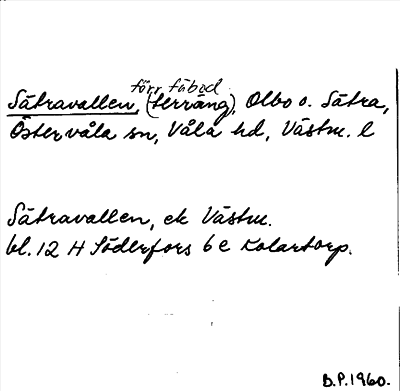 förr fäbod
Sätravallen, (terräng), Olbo o. Sätra,
Östervåla sn, Våla hd, Västm. l
Sätravallen, ek Västm.
bl. 12 H Söderfors 6 e Kolartorp.
B.P. 1960.